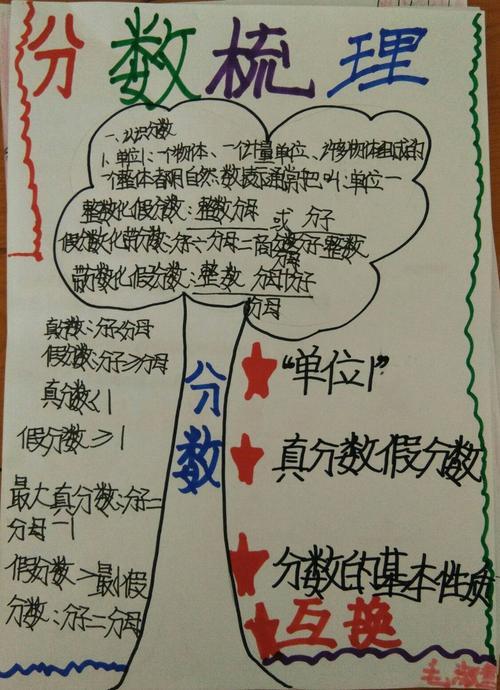 分数梳理
一、认识分数
1、单位1:一个物体、一个计量单位、许多物体组成的
一个整体都用自然数表示通常把叫:单位一
整数化假分数:整数分母 或 分子
假分数化带分数:分子÷分母=商 分子 整数
带分数化假分数:整数 分母+分子
分母
真分数:分子分母
假分数:分子≥分母
真分数<1
假分数≥1
最大真分数:分子=
分母-1
假分数=最小假
分数:分子=分母
分数
“单位1”
真分数假分数
分数的基本性质
互换